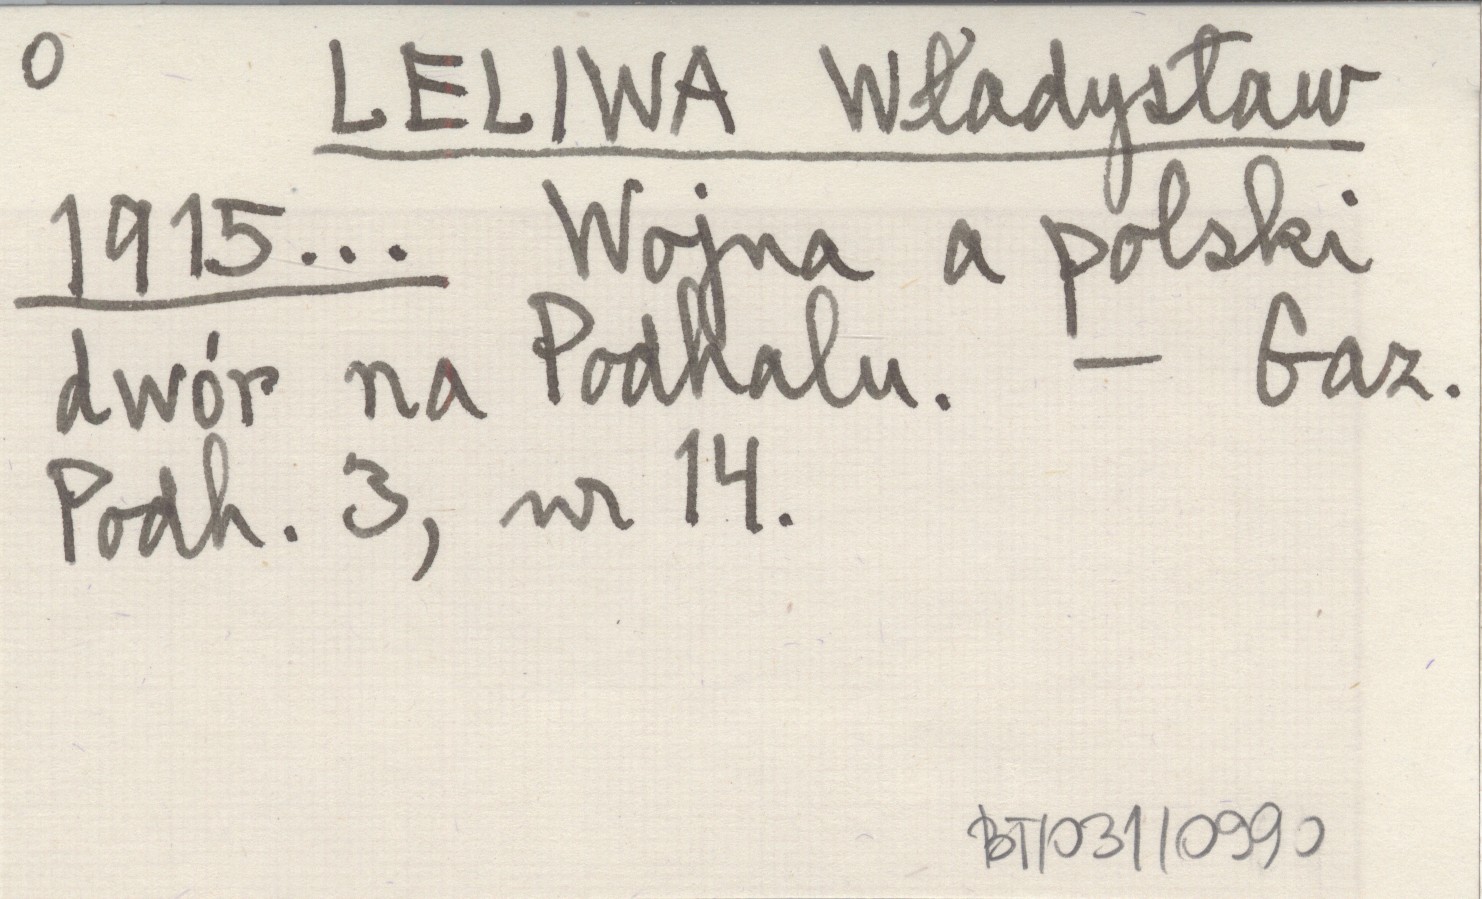 O LELIWA Władysław
1915... Wojna a polski
dwór na Podhalu. – Gaz.
Podh. 3, nr 14.
BT/031/0990